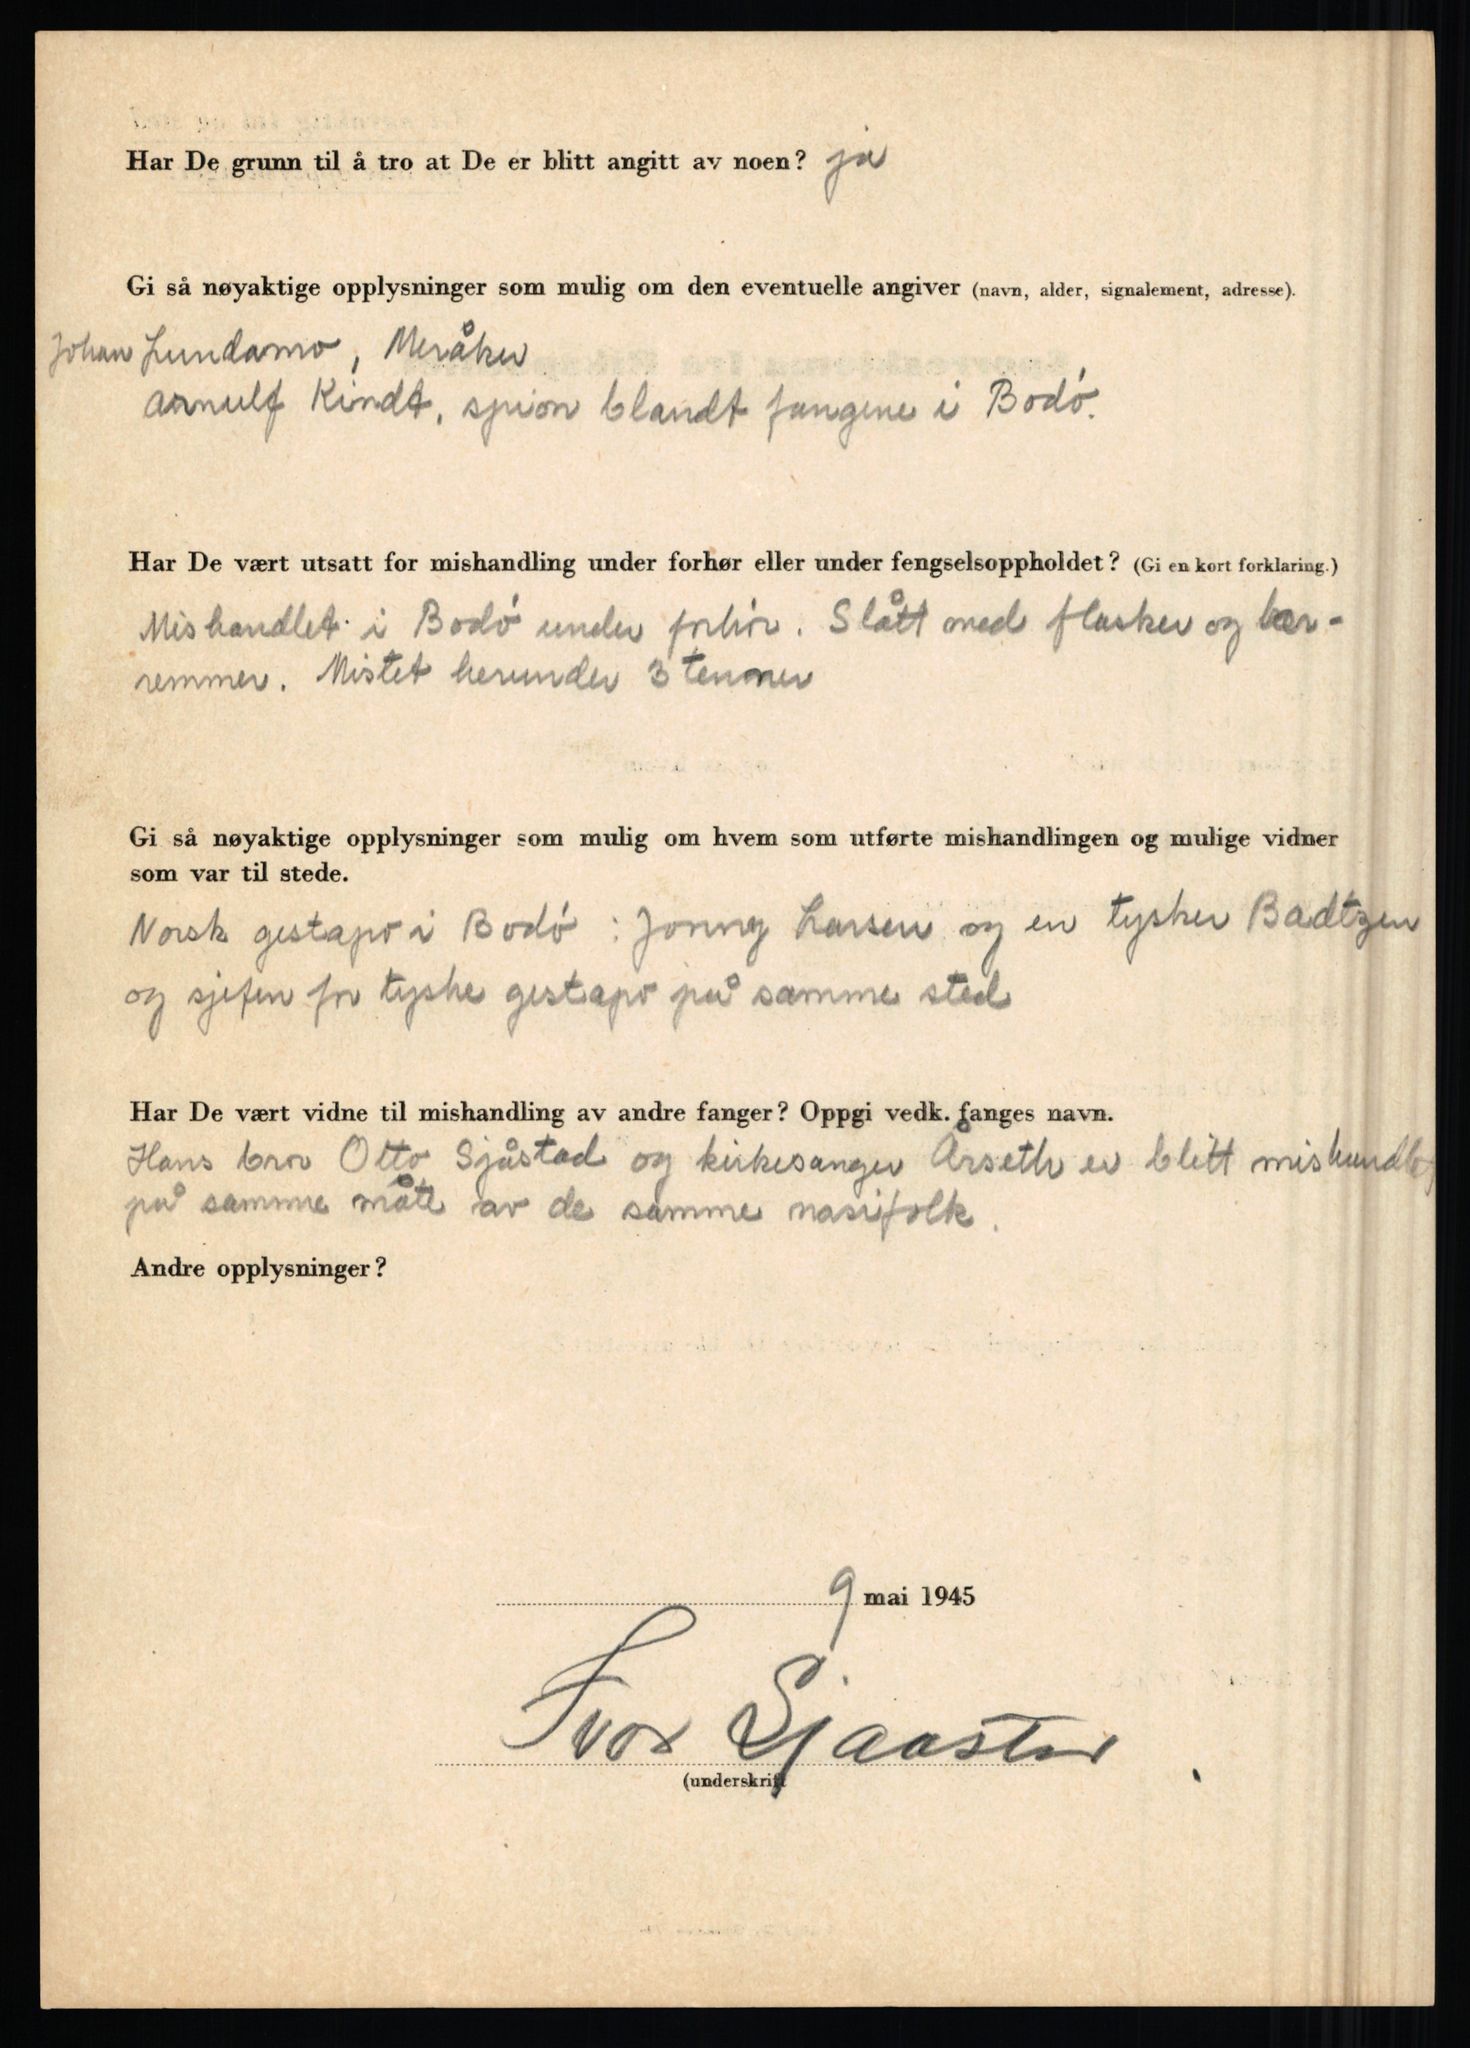 Har De grunn til å tro at De er blitt angitt av noen? ja
Gi så nøyaktige opplysninger som mulig om den eventuelle angiver (navn, alder, signalement, adresse).
Johan Lundamo, Meråker
Arnulf Kindt, spion blandt fangene i Bodó.
Har De vært utsatt for mishandling under forhør eller under fengselsoppholdet? (Gi en kort forklaring.)
Mishandlet i Bodó under forhór. Slått med flasker og bær-
remmer. Mistet herunder 3 tenner
Gi så nøyaktige opplysninger som mulig om hvem som utførte mishandlingen og mulige vidner
som var til stede.
Norsk gestapo i Bodó : Jonny Larsen og en tysker Badtzen
og sjefen for tyske gestapo på samme sted
Har De vært vidne til mishandling av andre fanger? Oppgi vedk. fanges navn.
Hans bror Otto Sjåstad og kirkesanger Årseth er blitt mishandlet
på samme måte av de samme nasifolk.
Andre opplysninger?
9 mai 1945
Ivar Sjaastad
(underskrift